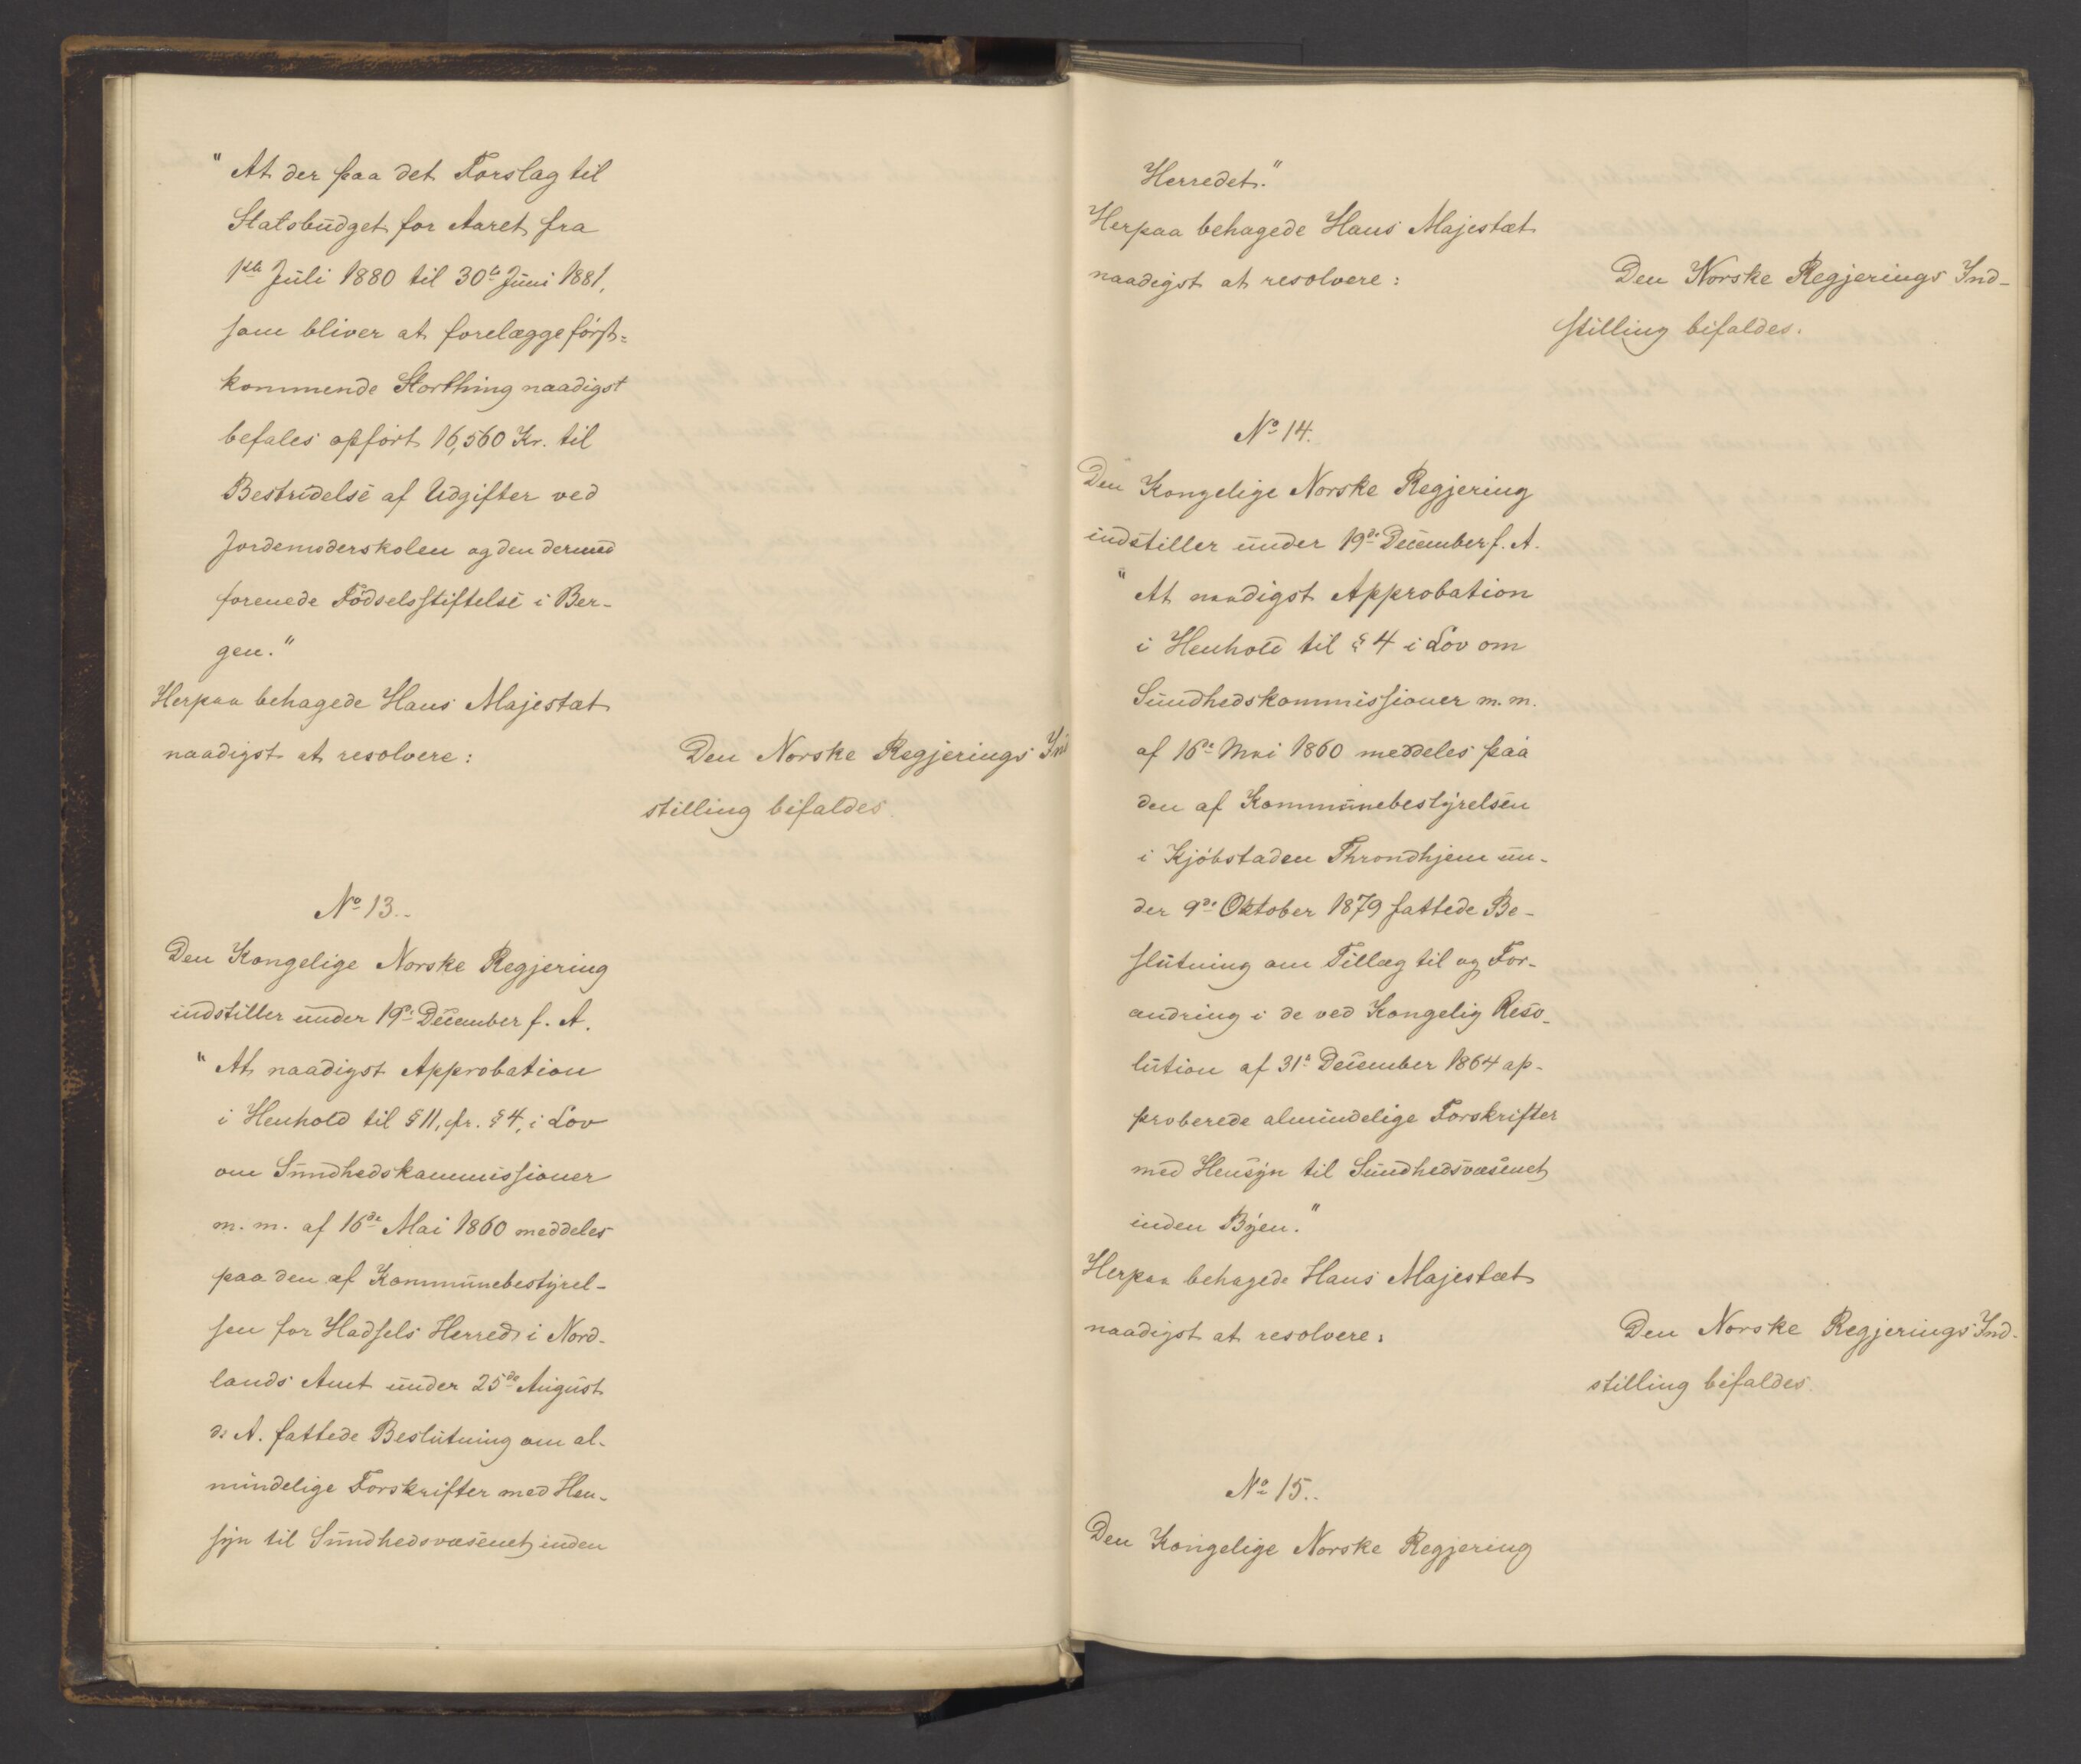 "At der paa det Forslag til
Statsbudget for Aaret fra
1ste Juli 1880 til 30te Juni 1881,
som bliver at forelægge först-
kommende Storthing naadigst
befales opfört 16,560 Kr. til
Bestridelse af Udgifter ved
Jordemoderskolen og den dermed
forenede Födselsstiftelse i Ber-
gen."
Herpaa behagede Hans Majestæt
naadigst at resolvere:
Den Norske Regjerings Ind
stilling bifaldes.
No 13.
Den Kongelige Norske Regjering
indstiller under 19de December f. A.
"At naadigst Approbation
i Henhold til § 11, cfr. § 4, i Lov
om Sundhedskommissioner
m. m. af 16de Mai 1860 meddeles
paa den af Kommunebestyrel-
sen for Hadsels Herred i Nord-
lands Amt under 25de August
d. A. fattede Beslutning om al-
mindelige Forskrifter med Hen-
syn til Sundhedsvæsenet inden
Herredet."
Herpaa behagede Hans Majestæt
naadigst at resolvere:
Den Norske Regjerings Ind-
stilling bifaldes.
No 14.
Den Kongelige Norske Regjering
indstiller under 19de December f. A.
"At naadigst Approbation
i Henhold til § 4 i Lov om
Sundhedskommissioner m. m.
af 16de Mai 1860 meddeles paa
den af Kommunebestyrelsen
i Kjöbstaden Throndhjem un-
der 9de Oktober 1879 fattede Be-
slutning om Tillæg til og For-
andring i de ved Kongelig Reso-
lution af 31te December 1864 ap-
proberede almindelige Forskrifter
med Hensyn til Sundhedsvæsenet
inden Byen."
Herpaa behagede Hans Majestæt
naadigst at resolvere:
Den Norske Regjerings Ind-
stilling bifaldes.
No 15.
Den Kongelige Norske Regjering